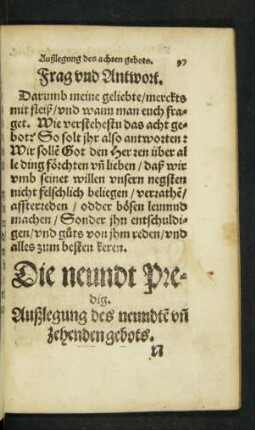 Außlegung des achten gebots. 97
Frag vnd Antwort.
Darumb meine geliebte/merckts
mit fleiß/vnd wann man euch fra-
get. Wie verstehestu das acht ge-
bot? So solt jhr also antworten:
Wir sollē Got den Herren über al
le ding förchten vñ lieben/daß wir
vmb seinet willen vnsern negsten
nicht felschlich beliegen/verrathē/
affterreden/odder bösen leumnd
machen/Sonder jhn entschuldi-
gen/vnd güts von jhm reden/vnd
alles zum besten keren.
Die neundt Pre-
dig.
Außlegung des neundtē vñ
zehenden gebots.
N